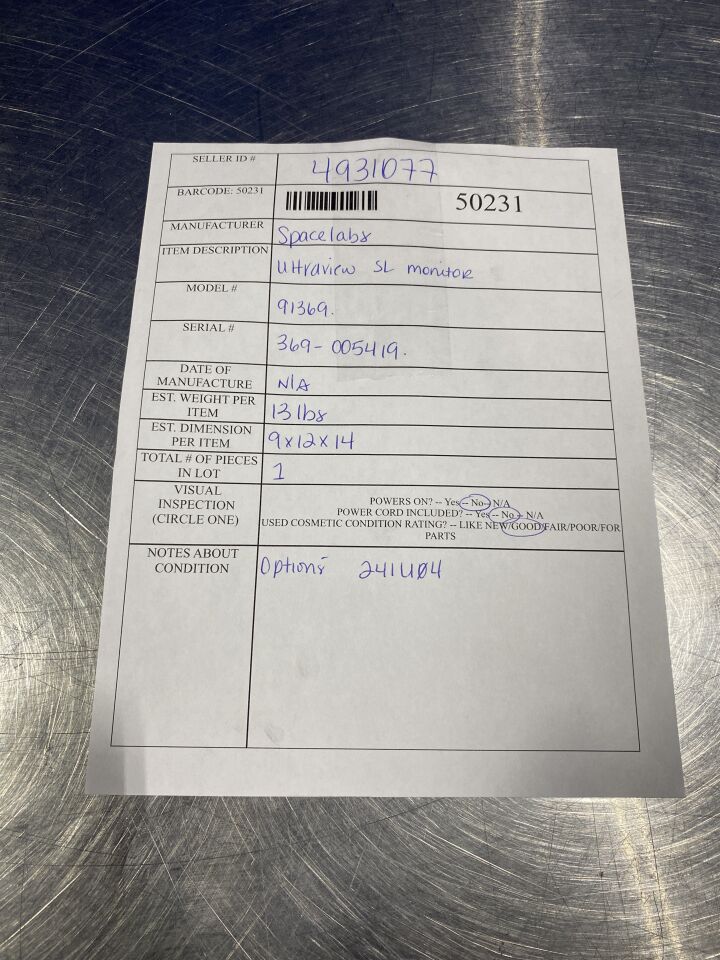 SELLER ID # 4931077
BARCODE: 50231 50231
MANUFACTURER Spacelabs
ITEM DESCRIPTION Ultraview SL monitor
MODEL # 91369.
SERIAL # 369-005419.
DATE OF
MANUFACTURE N/A
EST. WEIGHT PER
ITEM 13 lbs
EST. DIMENSION
PER ITEM 9x12x14
TOTAL # OF PIECES
IN LOT 1
VISUAL
INSPECTION
(CIRCLE ONE)
POWERS ON? -- Yes -- No -- N/A
POWER CORD INCLUDED? -- Yes -- No -- N/A
USED COSMETIC CONDITION RATING? -- LIKE NEW/GOOD/FAIR/POOR/FOR
PARTS
NOTES ABOUT
CONDITION
Options 241U04